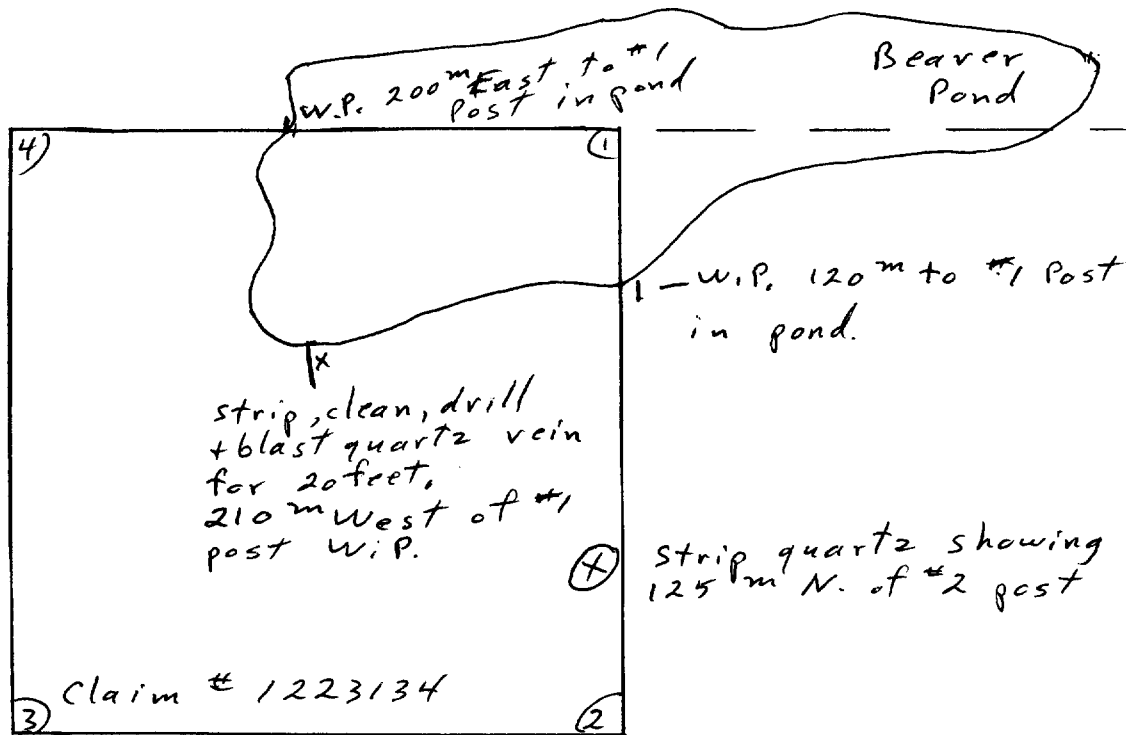 Beaver
Pond
W.P. 200m East to #1
Post in pond
4
1
1 - W.P. 120m to #1 Post
in pond.
x
strip, clean, drill
+ blast quartz vein
for 20 feet.
210m West of #1
post W.P.
X
strip quartz showing
125m N. of #2 post
Claim # 1223134
3
2